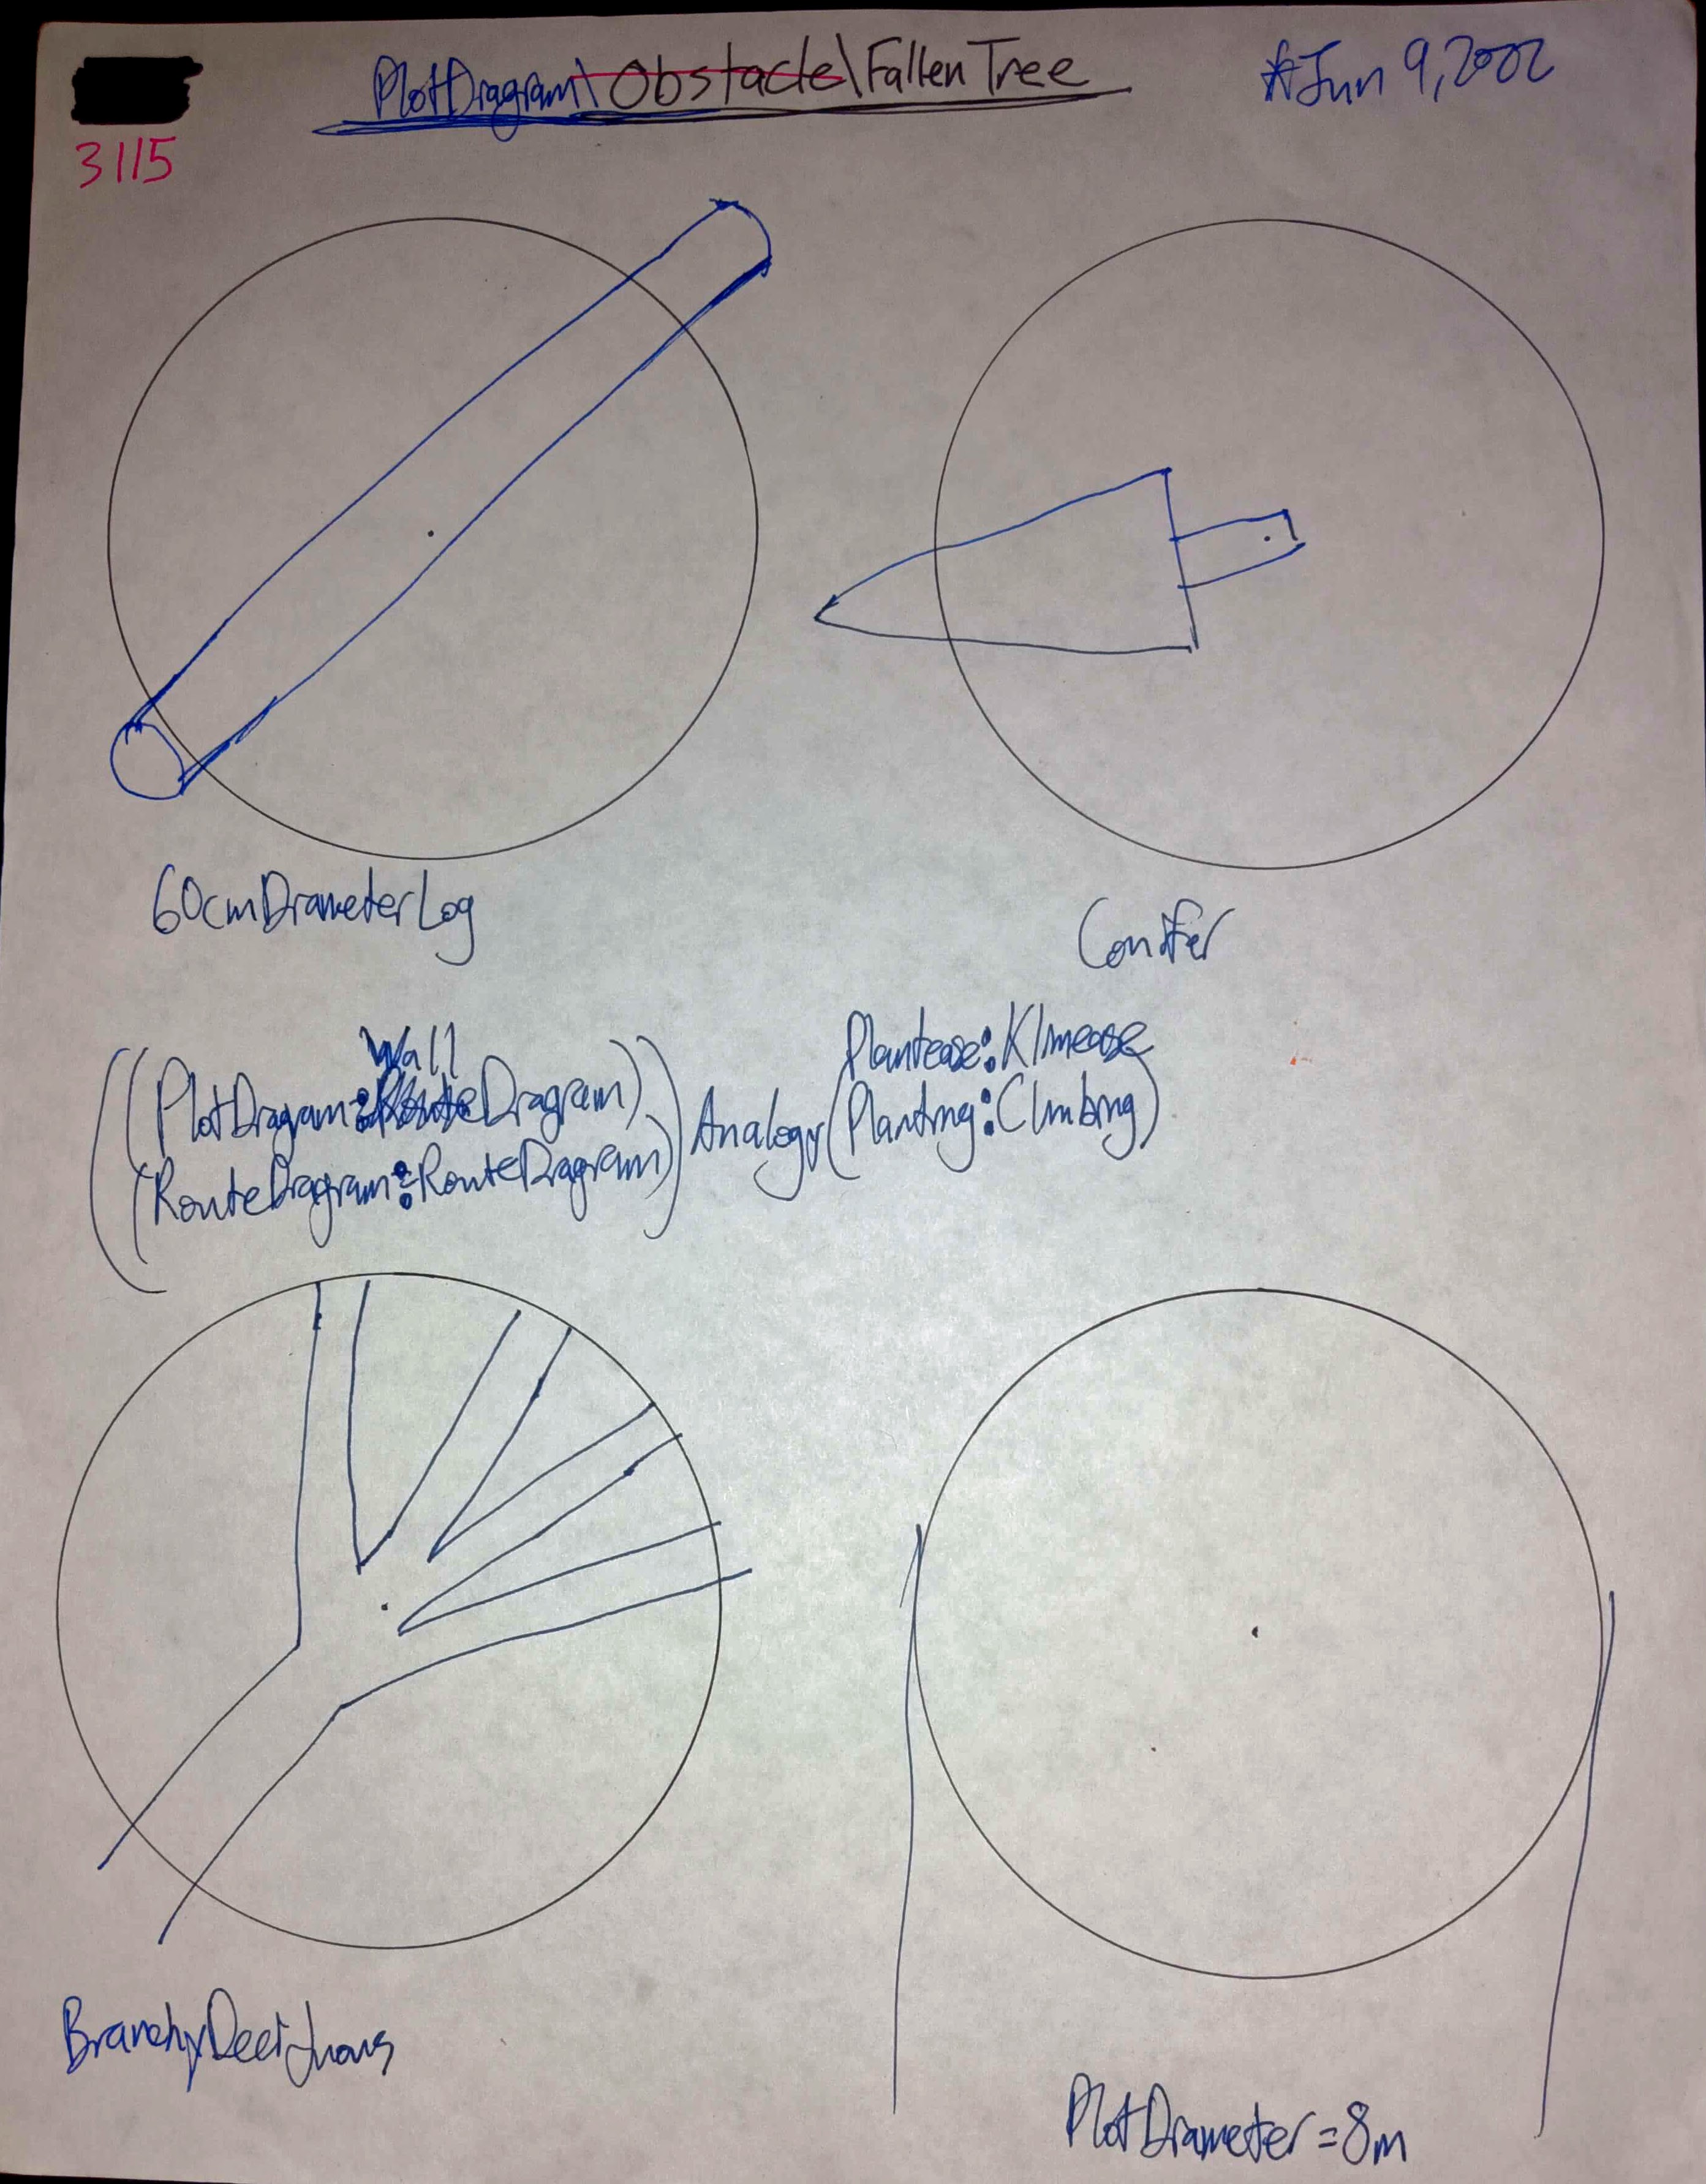 PlotDiagram\Obstacle\FallenTree
*Jun 9, 2002
3115
60cmDiameterLog
Conifer
Wall
((PlotDiagram:RouteDiagram)
(RouteDiagram:RouteDiagram)) Analogy (Planting:Climbing)
Plantease:Klimease
BranchyDeciduous
PlotDiameter=8m